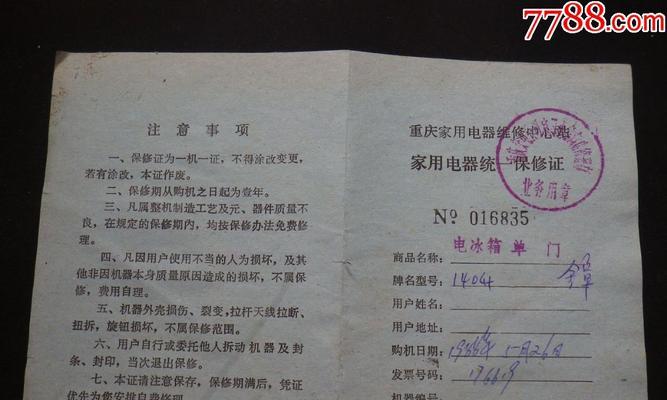 7788.com
注意事项
一、保修证为一机一证，不得涂改变更，
若有涂改，本证作废。
二、保修期从购机之日起为壹年。
三、凡属整机制造工艺及元、器件质量不
良，在规定的保修期内，均按保修办法免费修
理。
四、凡因用户使用不当的人为损坏，及其
他非因机器本身质量原因造成的损坏，不属保
修，费用自理。
五、机器外壳损伤、裂变，拉杆天线拉断、
扭拆，旋钮损坏，不属保修范围。
六、用户自行或委托他人拆动机器及封
条、封印，当次退出保修。
七、本证请注意保存，保修期满后，凭证
优先为您安排自费修理
重庆家用电器维修中心站
家用电器统一保修证
业务用章
№ 016835
商品名称：电冰箱单门
牌名型号：140
用户姓名：
用户地址：
购机日期：1988年1月26日
发票号码：
机器编号